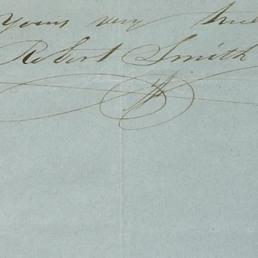 Yours very
Robert Smith